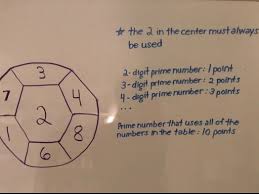 ★ the 2 in the center must always
be used
2-digit prime number: 1 point
3-digit prime number: 2 points
4-digit prime number: 3 points
Prime number that uses all of the
numbers in the table: 10 points
3
7
4
2
1
8
6